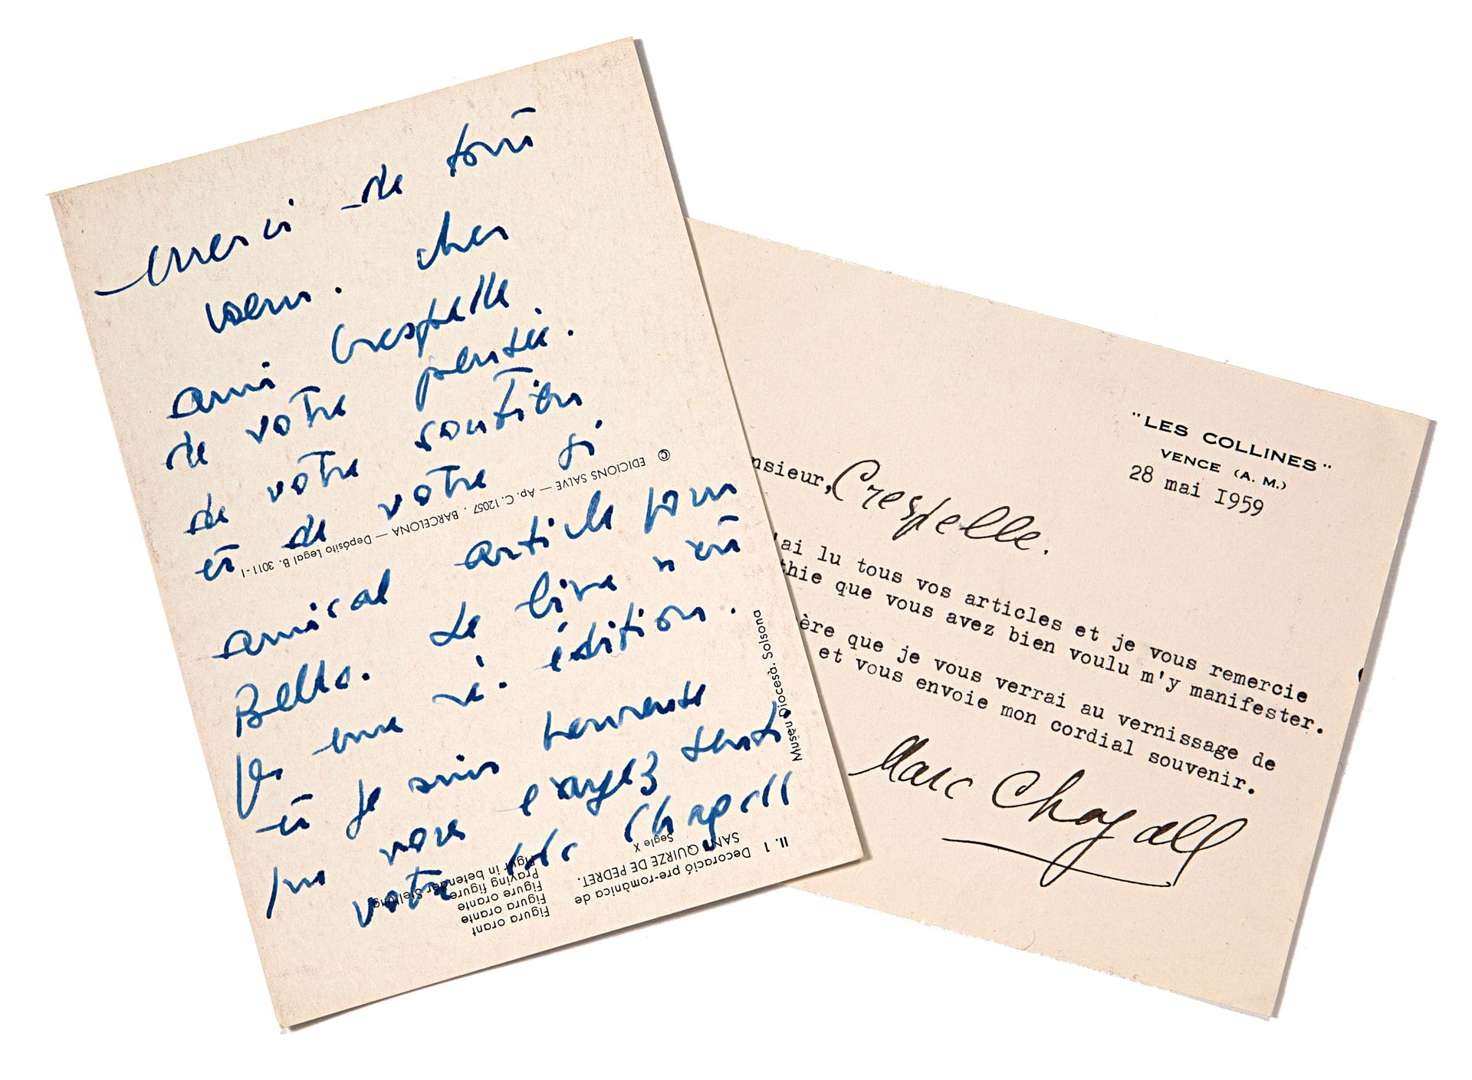 merci de tout
coeur. cher
ami Crespelle
de votre pensée.
de votre soutien
et de votre si
amical article pour
Bella. Le livre
édition.
et je suis heureuse
que vous
votre Marc Chagall
© EDICIONS SALVE — Ap. C. 12057 . BARCELONA — Depósito Legal B. 3011-I
Museu Diocesà. Solsona
II. 1 Decoració pre-romànica de
SANT QUIRZE DE PEDRET.
Segle X
Figura orant
Figura orante
Figure orante
Praying figure
Figur in betender Stellung
"LES COLLINES"
VENCE (A. M.)
28 mai 1959
nsieur, Crespelle.
'ai lu tous vos articles et je vous remercie
thie que vous avez bien voulu m'y manifester.
ère que je vous verrai au vernissage de
et vous envoie mon cordial souvenir.
Marc Chagall